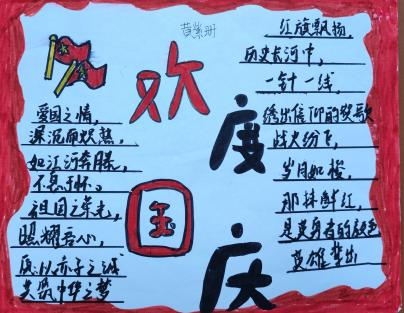 黄紫珊
欢
度
国
庆
爱国之情,
深沉而炽热,
如江河奔腾,
不息于怀。
祖国之荣光,
照耀吾心,
愿以赤子之诚
共筑中华之梦
红旗飘扬,
历史长河中,
一针一线,
绣出信仰的赞歌
战火纷飞,
岁月如梭,
那抹鲜红,
是英勇者的
英雄